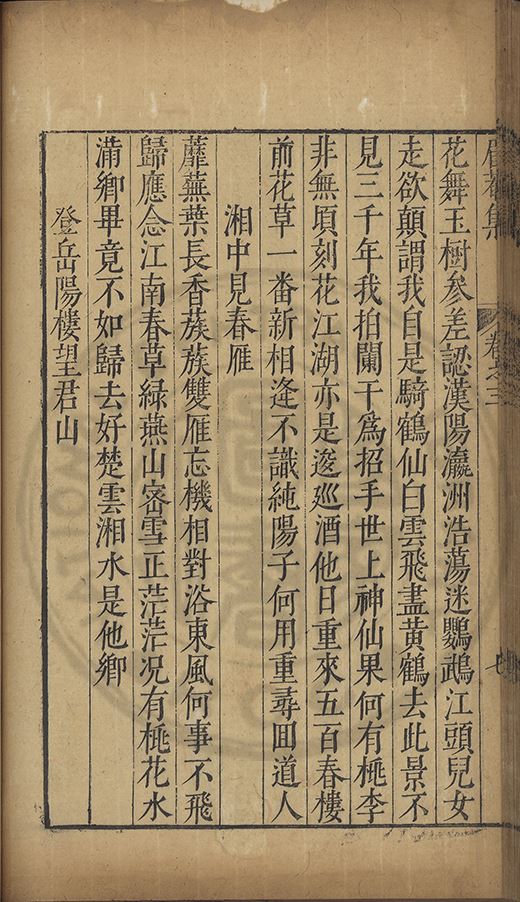 眉菴集 卷之三 七
花舞玉樹參差認漢陽瀛洲浩蕩迷鸚鵡江頭兒女
走欲顛謂我自是騎鶴仙白雲飛盡黃鶴去此景不
見三千年我拍闌干爲招手世上神仙果何有桃李
非無頃刻花江湖亦是逡廵酒他日重來五百春樓
前花草一番新相逢不識純陽子何用重尋囬道人
湘中見春雁
蘼蕪葉長香蔟蔟雙雁忘機相對浴東風何事不飛
歸應念江南春草綠燕山宻雪正茫茫况有桃花水
滿鄉畢竟不如歸去好楚雲湘水是他鄉
登岳陽樓望君山